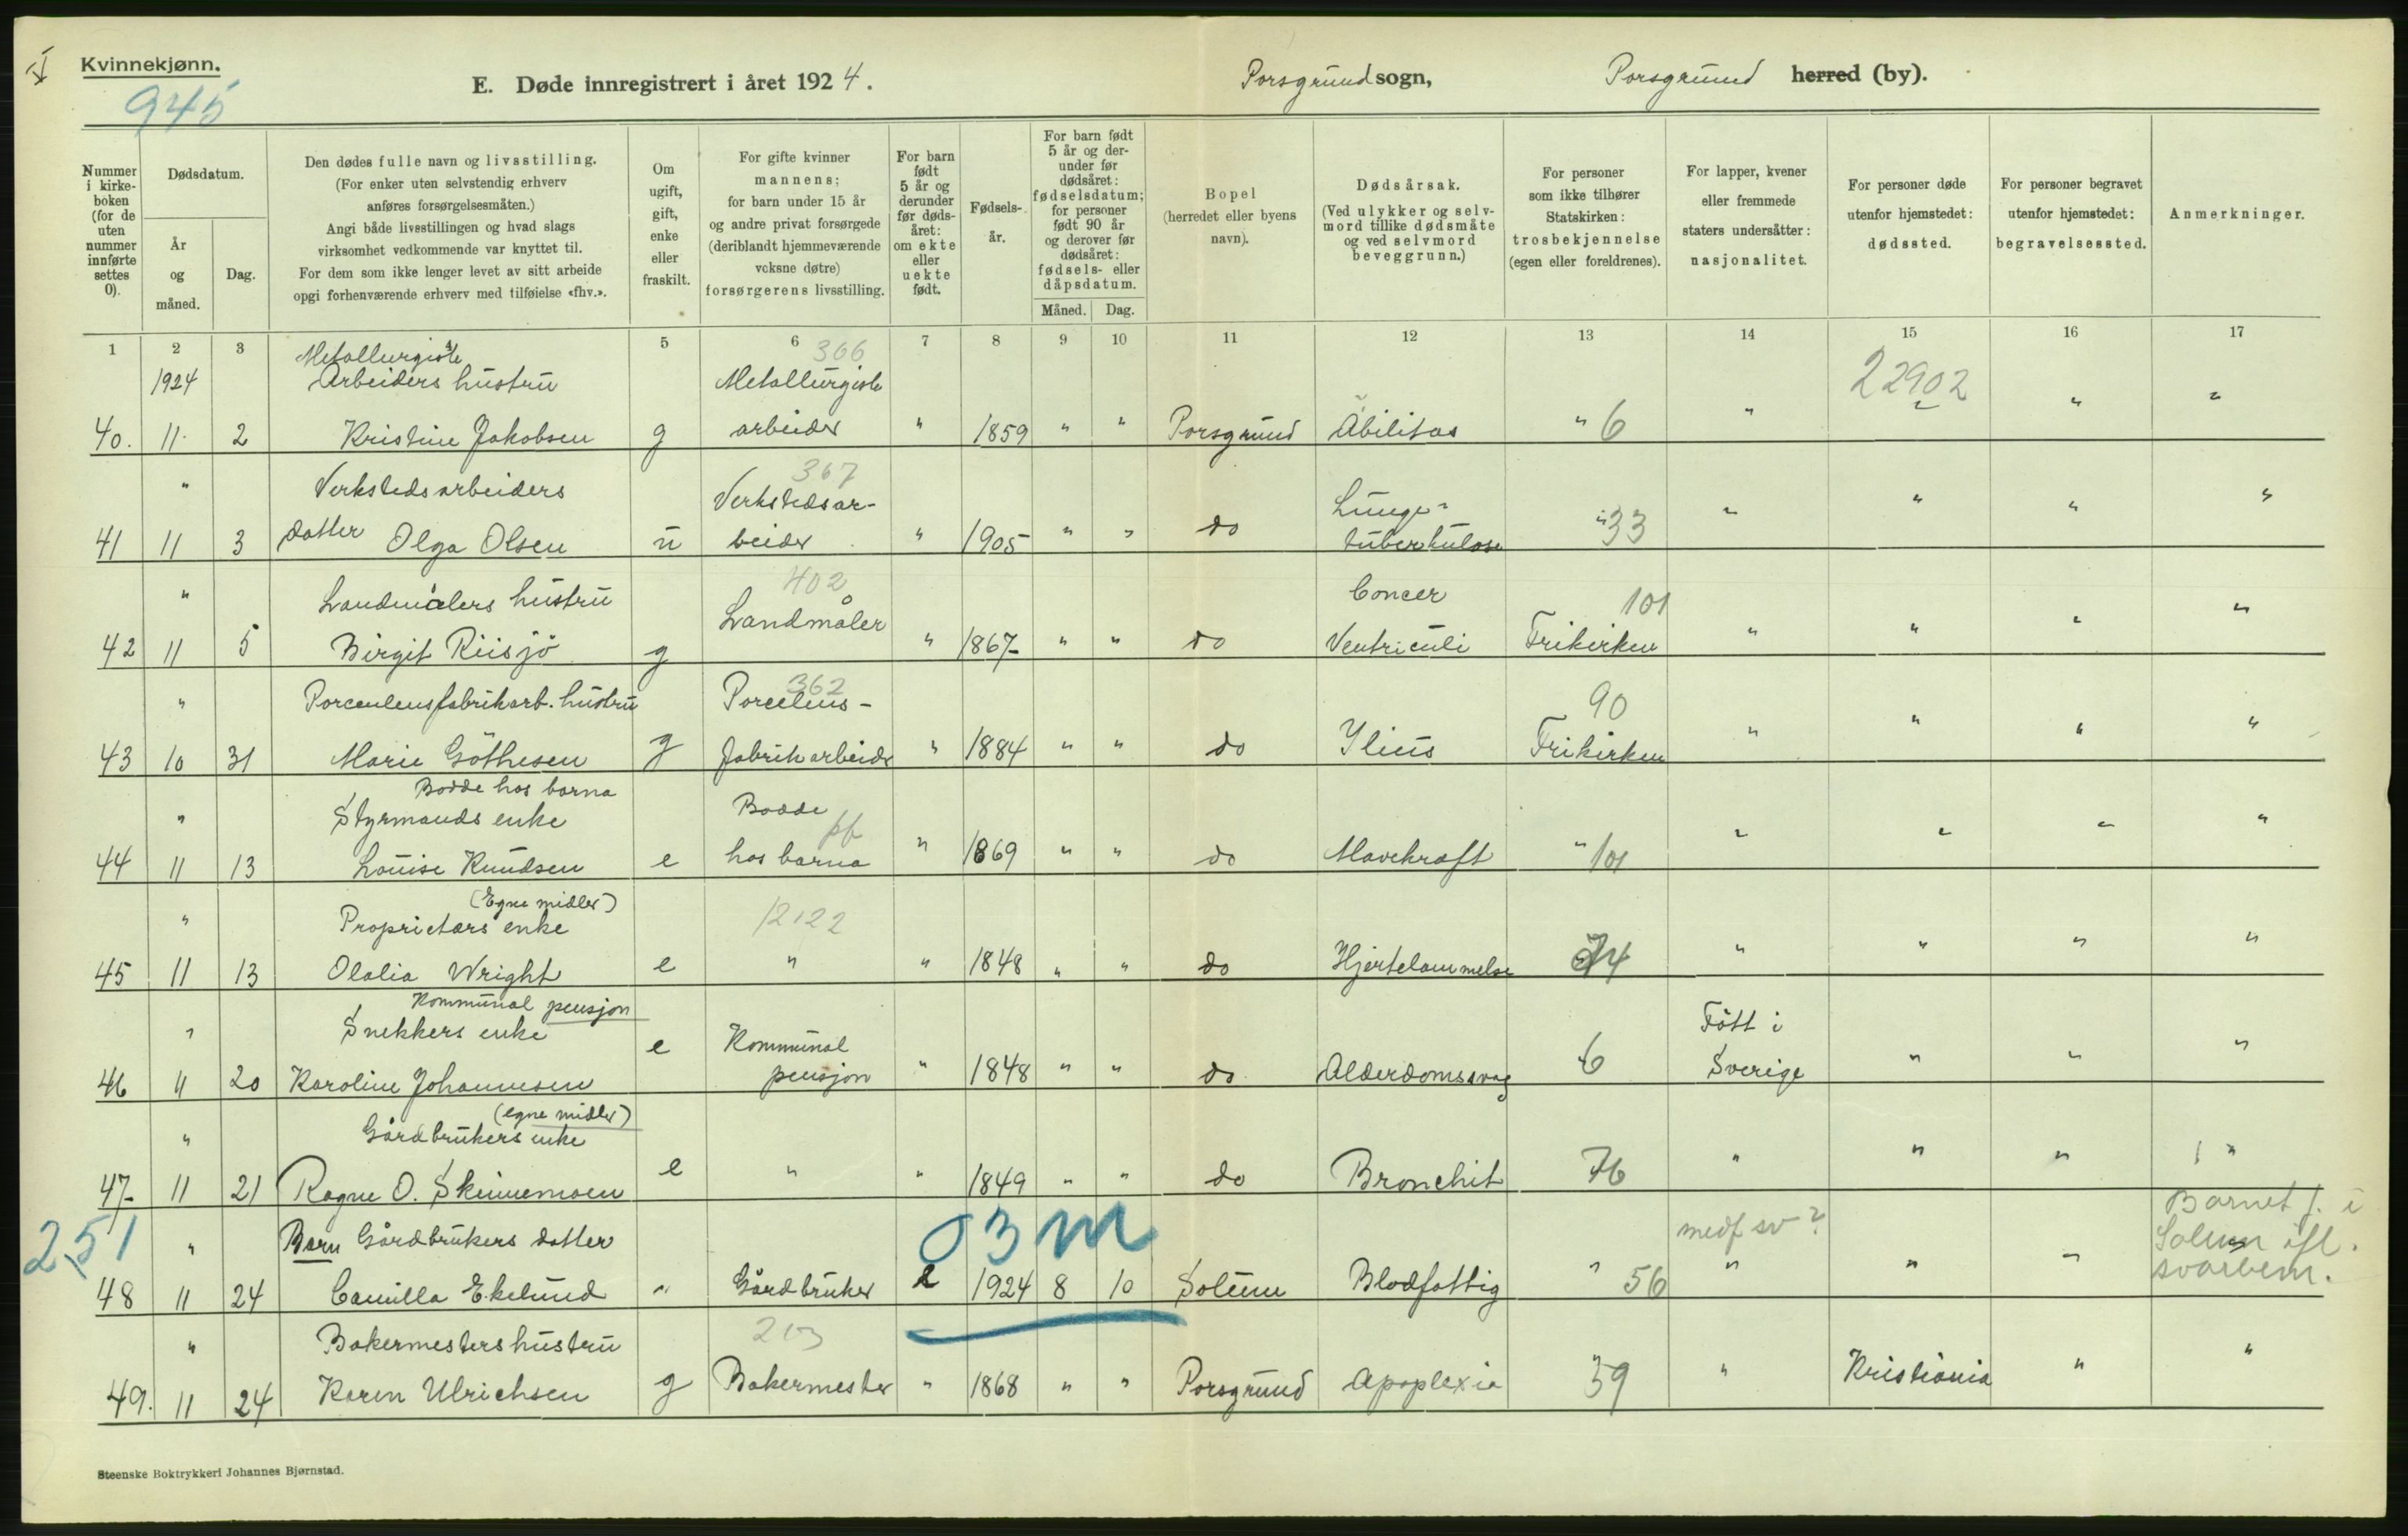 Kvinnekjønn.
945
E. Døde innregistrert i året 1924.
Porsgrund sogn,
Porsgrund herred (by).
Nummer i kirkeboken (for de uten nummer innførte settes 0).
Dødsdatum.
År og måned.
Dag.
Den dødes fulle navn og livsstilling.
(For enker uten selvstendig erhverv
anføres forsørgelsesmåten.)
Angi både livsstillingen og hvad slags
virksomhet vedkommende var knyttet til.
For dem som ikke lenger levet av sitt arbeide
opgi forhenværende erhverv med tilføielse «fhv.».
Om ugift, gift, enke eller fraskilt.
For gifte kvinner
mannens;
for barn under 15 år
og andre privat forsørgede
(deriblandt hjemmeværende
voksne døtre)
forsørgerens livsstilling.
For barn født 5 år og derunder før dødsåret: om ekte eller uekte født.
Fødselsår.
For barn født 5 år og derunder før dødsåret: fødselsdatum; for personer født 90 år og derover før dødsåret: fødsels- eller dåpsdatum.
Måned. Dag.
Bopel
(herredet eller byens
navn).
Dødsårsak.
(Ved ulykker og selvmord tillike dødsmåte
og ved selvmord
beveggrunn.)
For personer
som ikke tilhører
Statskirken:
trosbekjennelse
(egen eller foreldrenes).
For lapper, kvener
eller fremmede
staters undersåtter:
nasjonalitet.
For personer døde
utenfor hjemstedet:
dødssted.
For personer begravet
utenfor hjemstedet:
begravelsessted.
Anmerkninger.
1 2 3 5 6 7 8 9 10 11 12 13 14 15 16 17
1924 Metallurgisk Arbeiders hustru 366 Metallurgisk 22902
40. 11 2 Kristine Jakobsen g arbeider " 1859 " " Porsgrund Äbilitas " 6 " " " "
" Verksteds arbeiders 367 Verkstedsar- Lunge-
41 11 3 datter Olga Olsen u beider " 1905 " " do tuberkulose " 33 " " " "
" Landmålers hustru 402 Landmåler Cancer 101
42 11 5 Birgit Riisjö g " 1867 " " do Ventriculi Frikirken " " " "
" Porcenlensfabrikarb. hustru 362 Porcelens- 90
43 10 31 Marie Göthesen g fabrikarbeider " 1884 " " do Ilius Frikirken " " " "
Bodde hos barna
" Styrmands enke Bodde pf
44 11 13 Louise Knudsen e hos barna " 1869 " " do Mavekraft " 101 " " " "
(Egne midler)
" Proprietærs enke 12122
45 11 13 Olalia Wright e " " 1848 " " do Hjertelammelse 74 " " " "
Kommunal pensjon
" Snekkers enke Kommunal Fött i
46 11 20 Karoline Johannesen e pensjon " 1848 " " do Alderdomssvag 6 Sverige " " "
(egne midler)
" Gårdbrukers enke
47 11 21 Ragne O. Skinnemoen e " " 1849 " " do Bronchit 76 " " " "
251 03 m medf sv? Barnet f. i
" Barn Gårdbrukers datter Solum ifl.
48 11 24 Camilla Ekelund " Gårdbruker e 1924 8 10 Solum Blodfattig " 56 " " " svarbem.
" Bakermesters hustru 213
49. 11 24 Karen Ulrichsen g Bakermester " 1868 " " Porsgrund Apoplexia 59 " Kristiania " "
Steenske Boktrykkeri Johannes Bjørnstad.